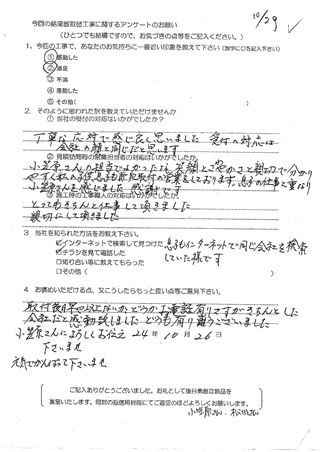 10/29
今回の給湯器取替工事に関するアンケートのお願い
(ひとつでも結構ですので、お気づきの点等をご記入ください。)
1、今回の工事で、あなたのお気持ちに一番近い印象を教えて下さい(数字に○を記入下さい)
①感動した
②満足
③不満
④落胆した
⑤その他( )
2. そのように思われた訳を教えていただけませんか
① 当社の受付の対応はいかがでしたか?
丁寧な応対で感じ良く思いました 受付の対応は
会社の顔と同じだと思います
② 見積訪問時の営業担当者の対応はいかがでしたか。
小笠原さんの担当でよかったな 笑顔とさわやかさと親切で分かり
やすく私の
小笠原さん感じました 感謝です
③ 施工時の工事職人の対応はいかがでしたか。
とってもきちんと仕事して頂きました
親切にして頂きました
3 当社を知られた方法をお教え下さい。
☑インターネットで検索して見つけた 息子もインターネットで同じ会社を検索
☑チラシを見て電話した していた様です
□知り合い等に教えてもらった
□その他( )
4 お褒めいただける点、又こうしたらもっと良い点等ご意見下さい。
取付後具合はいかがでしょうか お電話有りますがきちんとした
会社だと感動致しました どうも有り難うございました
小笠原さんによろしくお伝え 24年 10月 26日
下さいませ
元気でがんばって下さいませ
ご記入ありがとうございました。お礼として後日素敵な粗品を
進呈いたします。同封の返送用封筒にてご返信のほどよろしくお願いします。
小笠原さん、松田さん